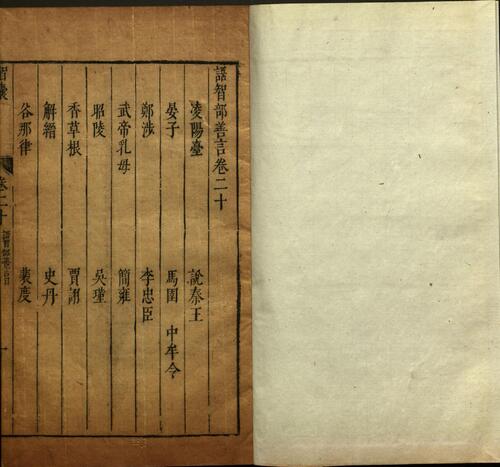 語智部善言卷二十
凌陽臺 說秦王
晏子 馬圉 中牟令
鄭涉 李忠臣
武帝乳母 簡雍
昭陵 吳瑾
香草根 賈詡
解縉 史丹
谷那律 裴度
智囊 卷二十 一